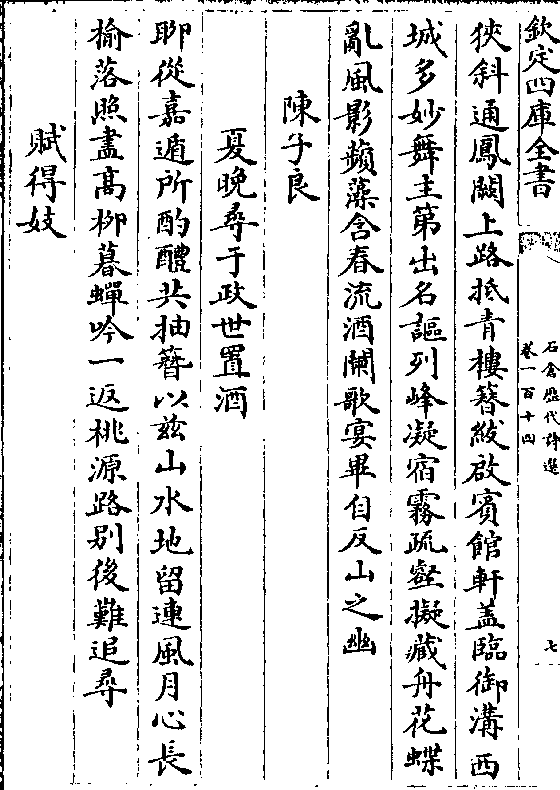 欽定四庫全書
石倉歷代詩選
卷一百十四
七
狹斜通鳳闕上路抵青樓簪紱啟賓館軒蓋臨御溝西
城多妙舞主第出名謳列峰凝宿霧疏壑擬藏舟花蝶
亂風影蘋藻含春流酒闌歌宴畢自反山之幽
陳子良
夏晚尋于政世置酒
聊從嘉遁所酌醴共抽簪以兹山水地留連風月心長
榆落照盡高柳暮蟬吟一返桃源路别後難追尋
賦得妓